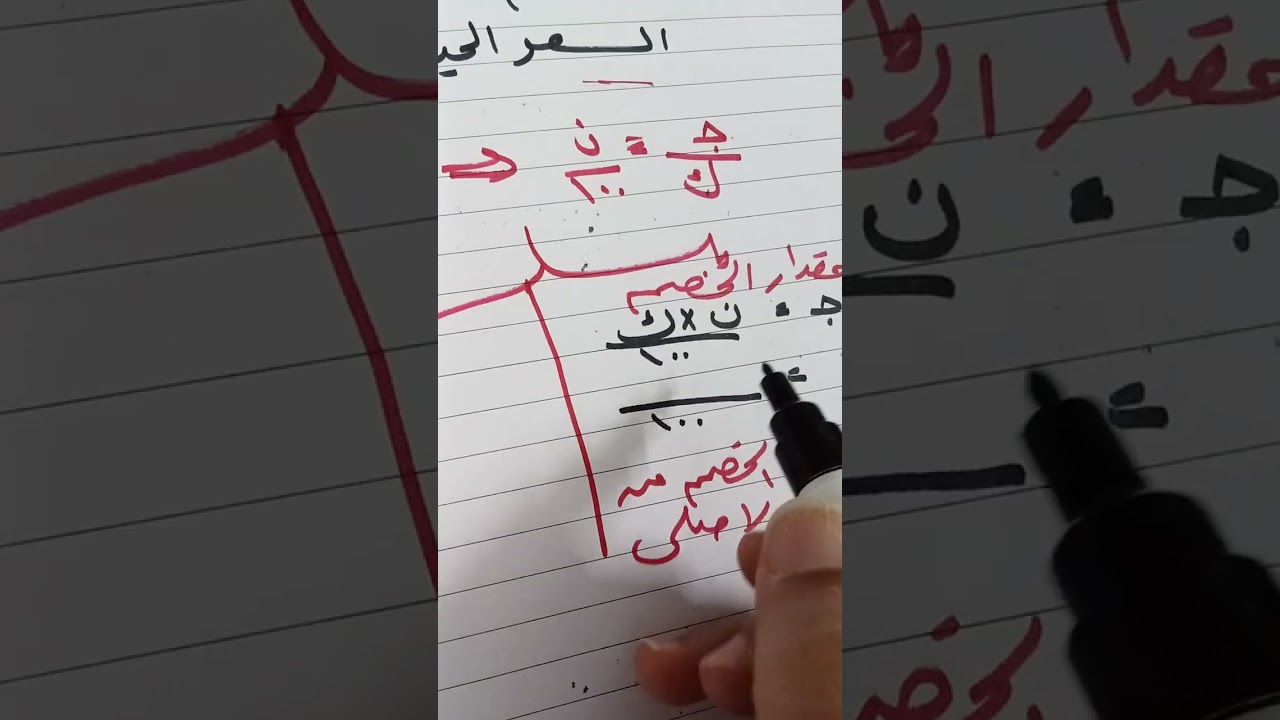 السعر الجديد
ج/ك = ن/١٠٠
مقدار الخصم
ج = ن × ك / ١٠٠
= ــــ / ١٠٠
الخصم من
الاصلي